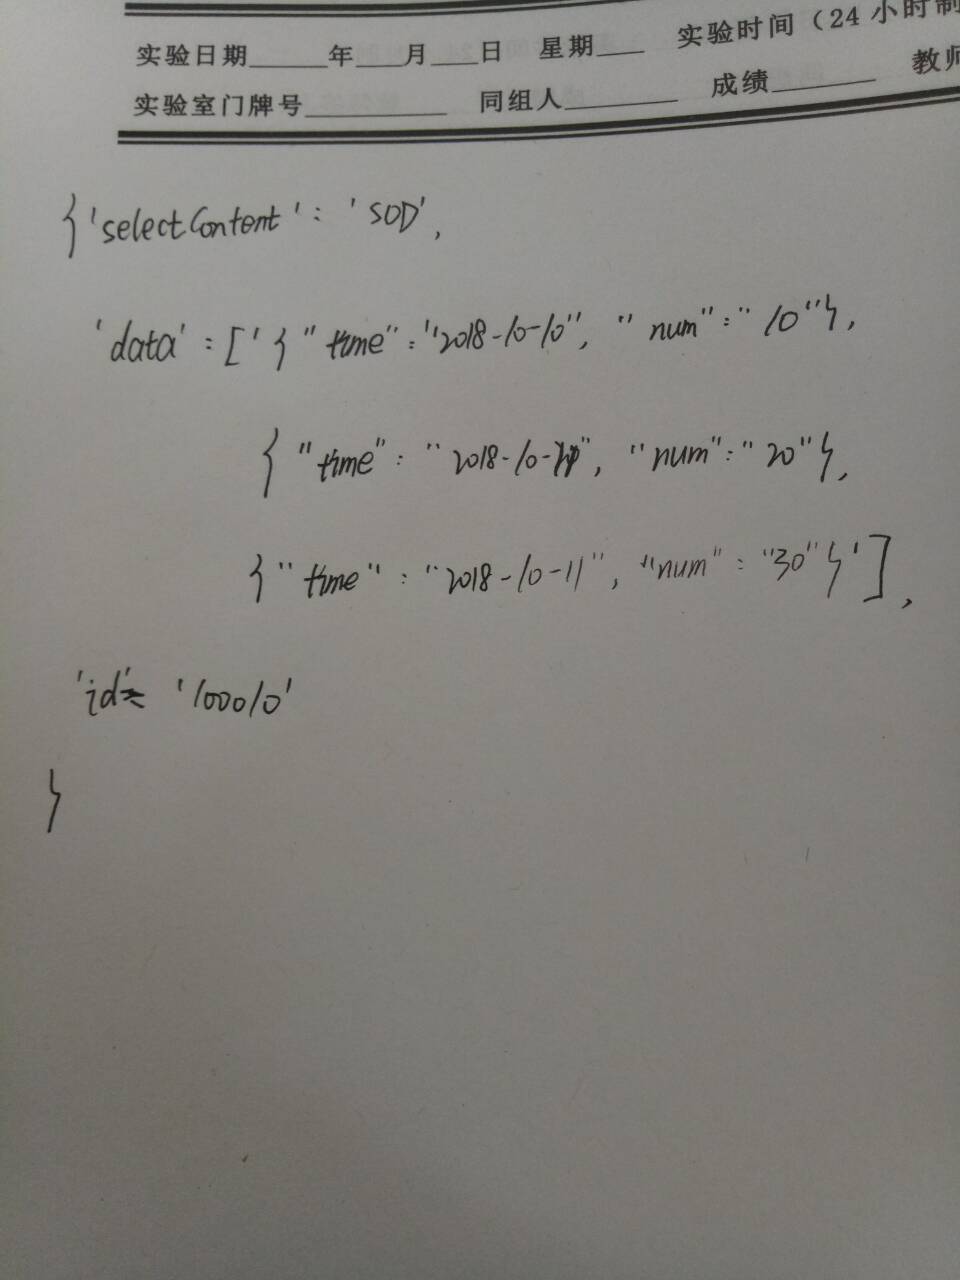 实验日期______年____月____日 星期____ 实验时间（24小时制
实验室门牌号___________ 同组人_________ 成绩________ 教师
{'selectContent': 'SOD',
'data':['{"time":"2018-10-10", "num":"10"},
{"time": "2018-10- ", "num":"20"},
{"time": "2018-10-11", "num": "30"}'],
'id': '100010'
}